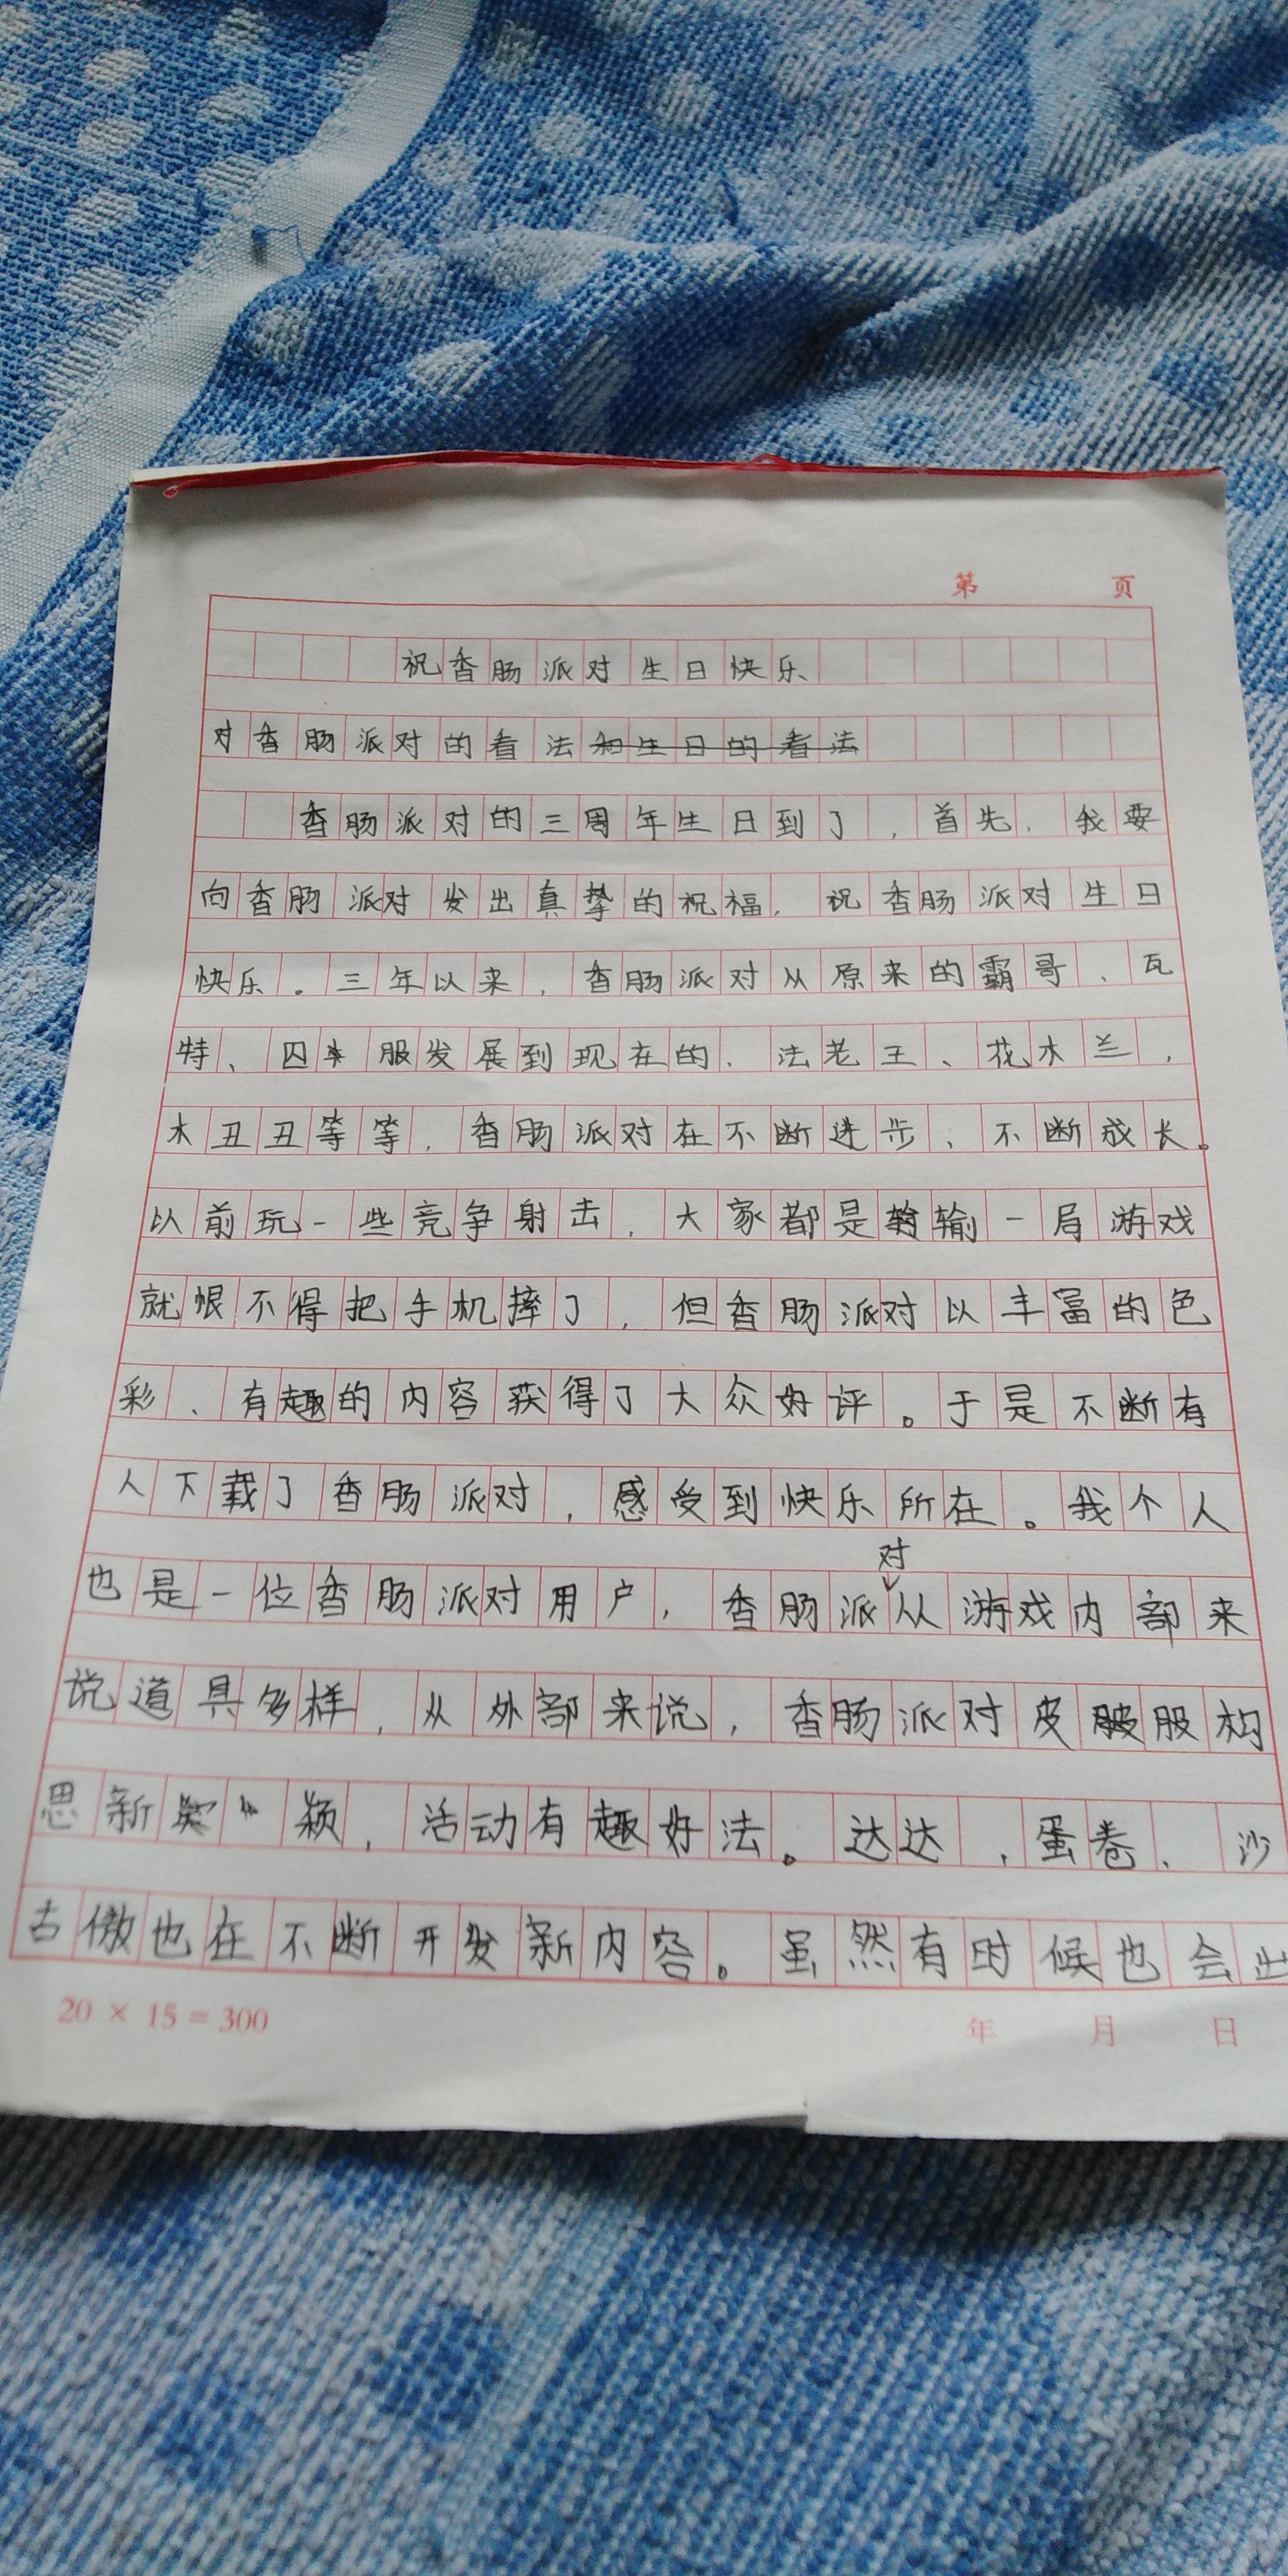 第 页
祝香肠派对生日快乐
对香肠派对的看法和生日的看法
香肠派对的三周年生日到了,首先,我要
向香肠派对发出真挚的祝福,祝香肠派对生日
快乐。三年以来,香肠派对从原来的霸哥、瓦
特、囚服发展到现在的、法老王、花木兰,
木丑丑等等,香肠派对在不断进步、不断成长。
以前玩一些竞争射击,大家都是输一局游戏
就恨不得把手机摔了,但香肠派对以丰富的色
彩、有趣的内容获得了大众好评。于是不断有
人下载了香肠派对,感受到快乐所在。我个人
也是一位香肠派对用户,香肠派对从游戏内部来
说道具多样,从外部来说,香肠派对皮服构
思新颖,活动有趣好法。达达,蛋卷、沙
古傲也在不断开发新内容。虽然有时候也会出
20 × 15 = 300
年 月 日